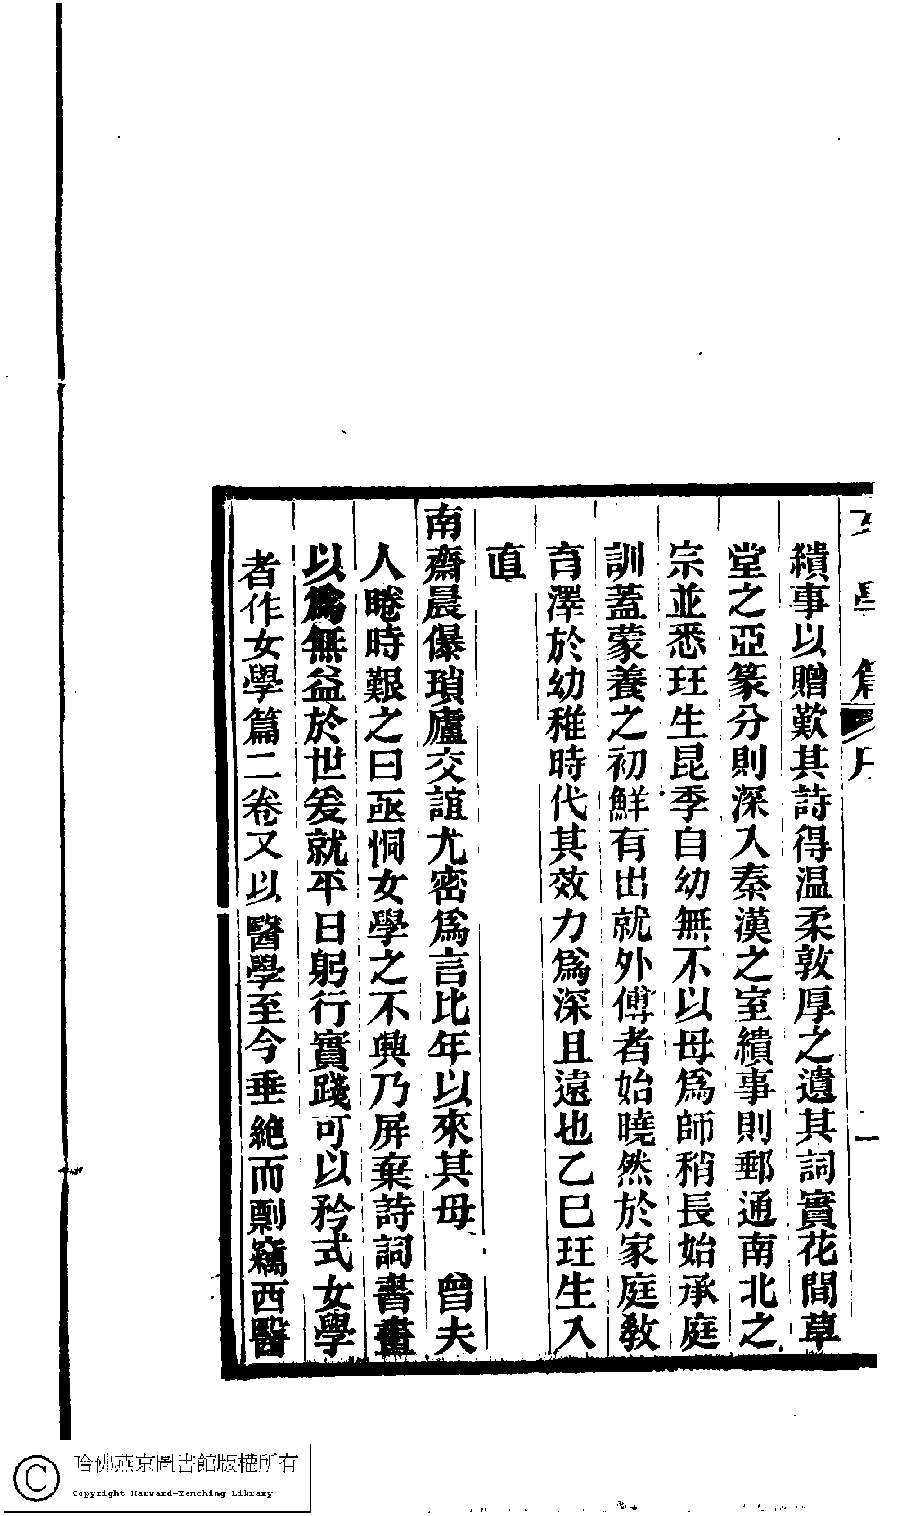 女學篇 序 一
繢事以贈歎其詩得温柔敦厚之遺其詞實花間草
堂之亞篆分則深入秦漢之室繢事則郵通南北之
宗並悉玨生昆季自幼無不以母爲師稍長始承庭
訓蓋蒙養之初鮮有出就外傅者始曉然於家庭教
育澤於幼稚時代其效力爲深且遠也乙巳玨生入
直
南齋晨傫瑣廬交誼尤密爲言比年以來其母 曾夫
人睠時艱之曰亟恫女學之不興乃屏棄詩詞書畫
以爲無益於世爰就平日躬行實踐可以矜式女學
者作女學篇二卷又以醫學至今垂絶而剽竊西醫
哈佛燕京圖書館版權所有
Copyright Harvard-Yenching Library